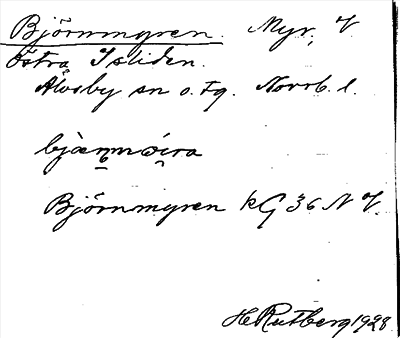 Björnmyren. Myr, V
Östra Isliden.
Älvsby sn o. tg. Norrb. l.
Björnmyren kG 36 N V.
H Rutberg 1928